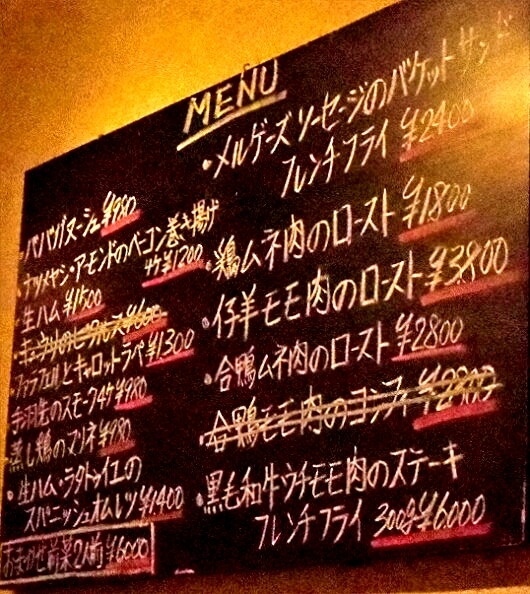 MENU
ババガヌーシュ ¥980
・ナツメヤシ・アーモンドのベーコン巻き揚げ
4ケ ¥1200
・生ハム ¥1500
・キュウリのピクルス ¥600
・ファラフェルとキャロットラペ ¥1300
手羽先のスモーク4ケ ¥980
蒸し鶏のマリネ ¥980
・生ハム・ラタトゥイユの
スパニッシュオムレツ ¥1400
おまかせ前菜2人前 ¥6000
・メルゲーズソーセージのバケットサンド
フレンチフライ ¥2400
・鶏ムネ肉のロースト ¥1800
・仔羊モモ肉のロースト ¥3800
・合鴨ムネ肉のロースト ¥2800
・合鴨モモ肉のコンフィ ¥2800
・黒毛和牛ウチモモ肉のステーキ
フレンチフライ 300g ¥6000